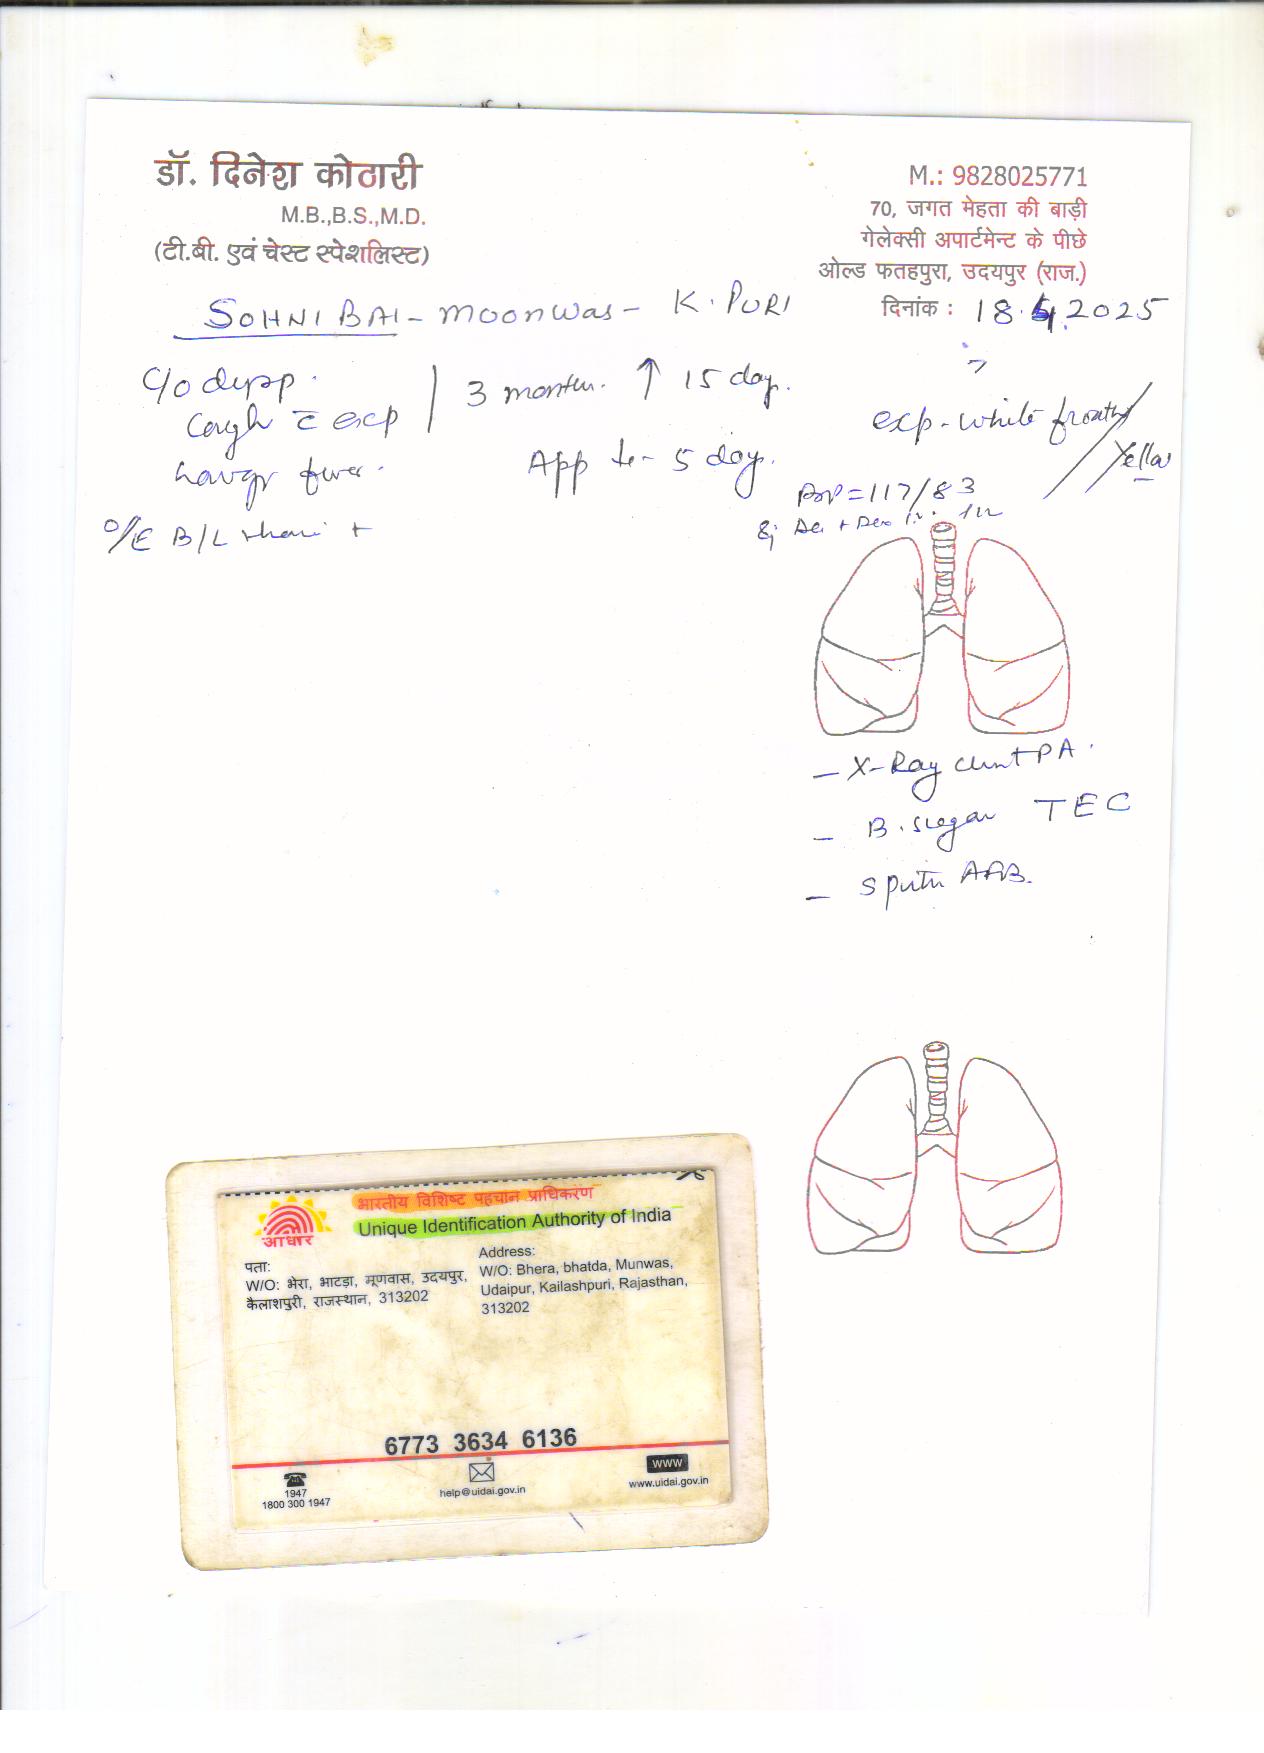 डॉ. दिनेश कोठारी
M.B.,B.S.,M.D.
(टी.बी. एवं चेस्ट स्पेशलिस्ट)
M.: 9828025771
70, जगत मेहता की बाड़ी
गेलेक्सी अपार्टमेन्ट के पीछे
ओल्ड फतहपुरा, उदयपुर (राज.)
दिनांक : 18. 2025
SOHNI BAI - MOONWAS - K. PURI
C/O
Cough c exp
3 month ↑ 15 day.
exp - white frothy / Yellow
App 5 day.
BP = 117/83
O/E B/L +
- X-Ray chest PA.
- B. Sugar TEC
- Sputum AFB.
आधार
भारतीय विशिष्ट पहचान प्राधिकरण
Unique Identification Authority of India
पता:
W/O: भेरा, भाटड़ा, मूणवास, उदयपुर,
कैलाशपुरी, राजस्थान, 313202
Address:
W/O: Bhera, bhatda, Munwas,
Udaipur, Kailashpuri, Rajasthan,
313202
6773 3634 6136
1947
1800 300 1947
help@uidai.gov.in
WWW
www.uidai.gov.in